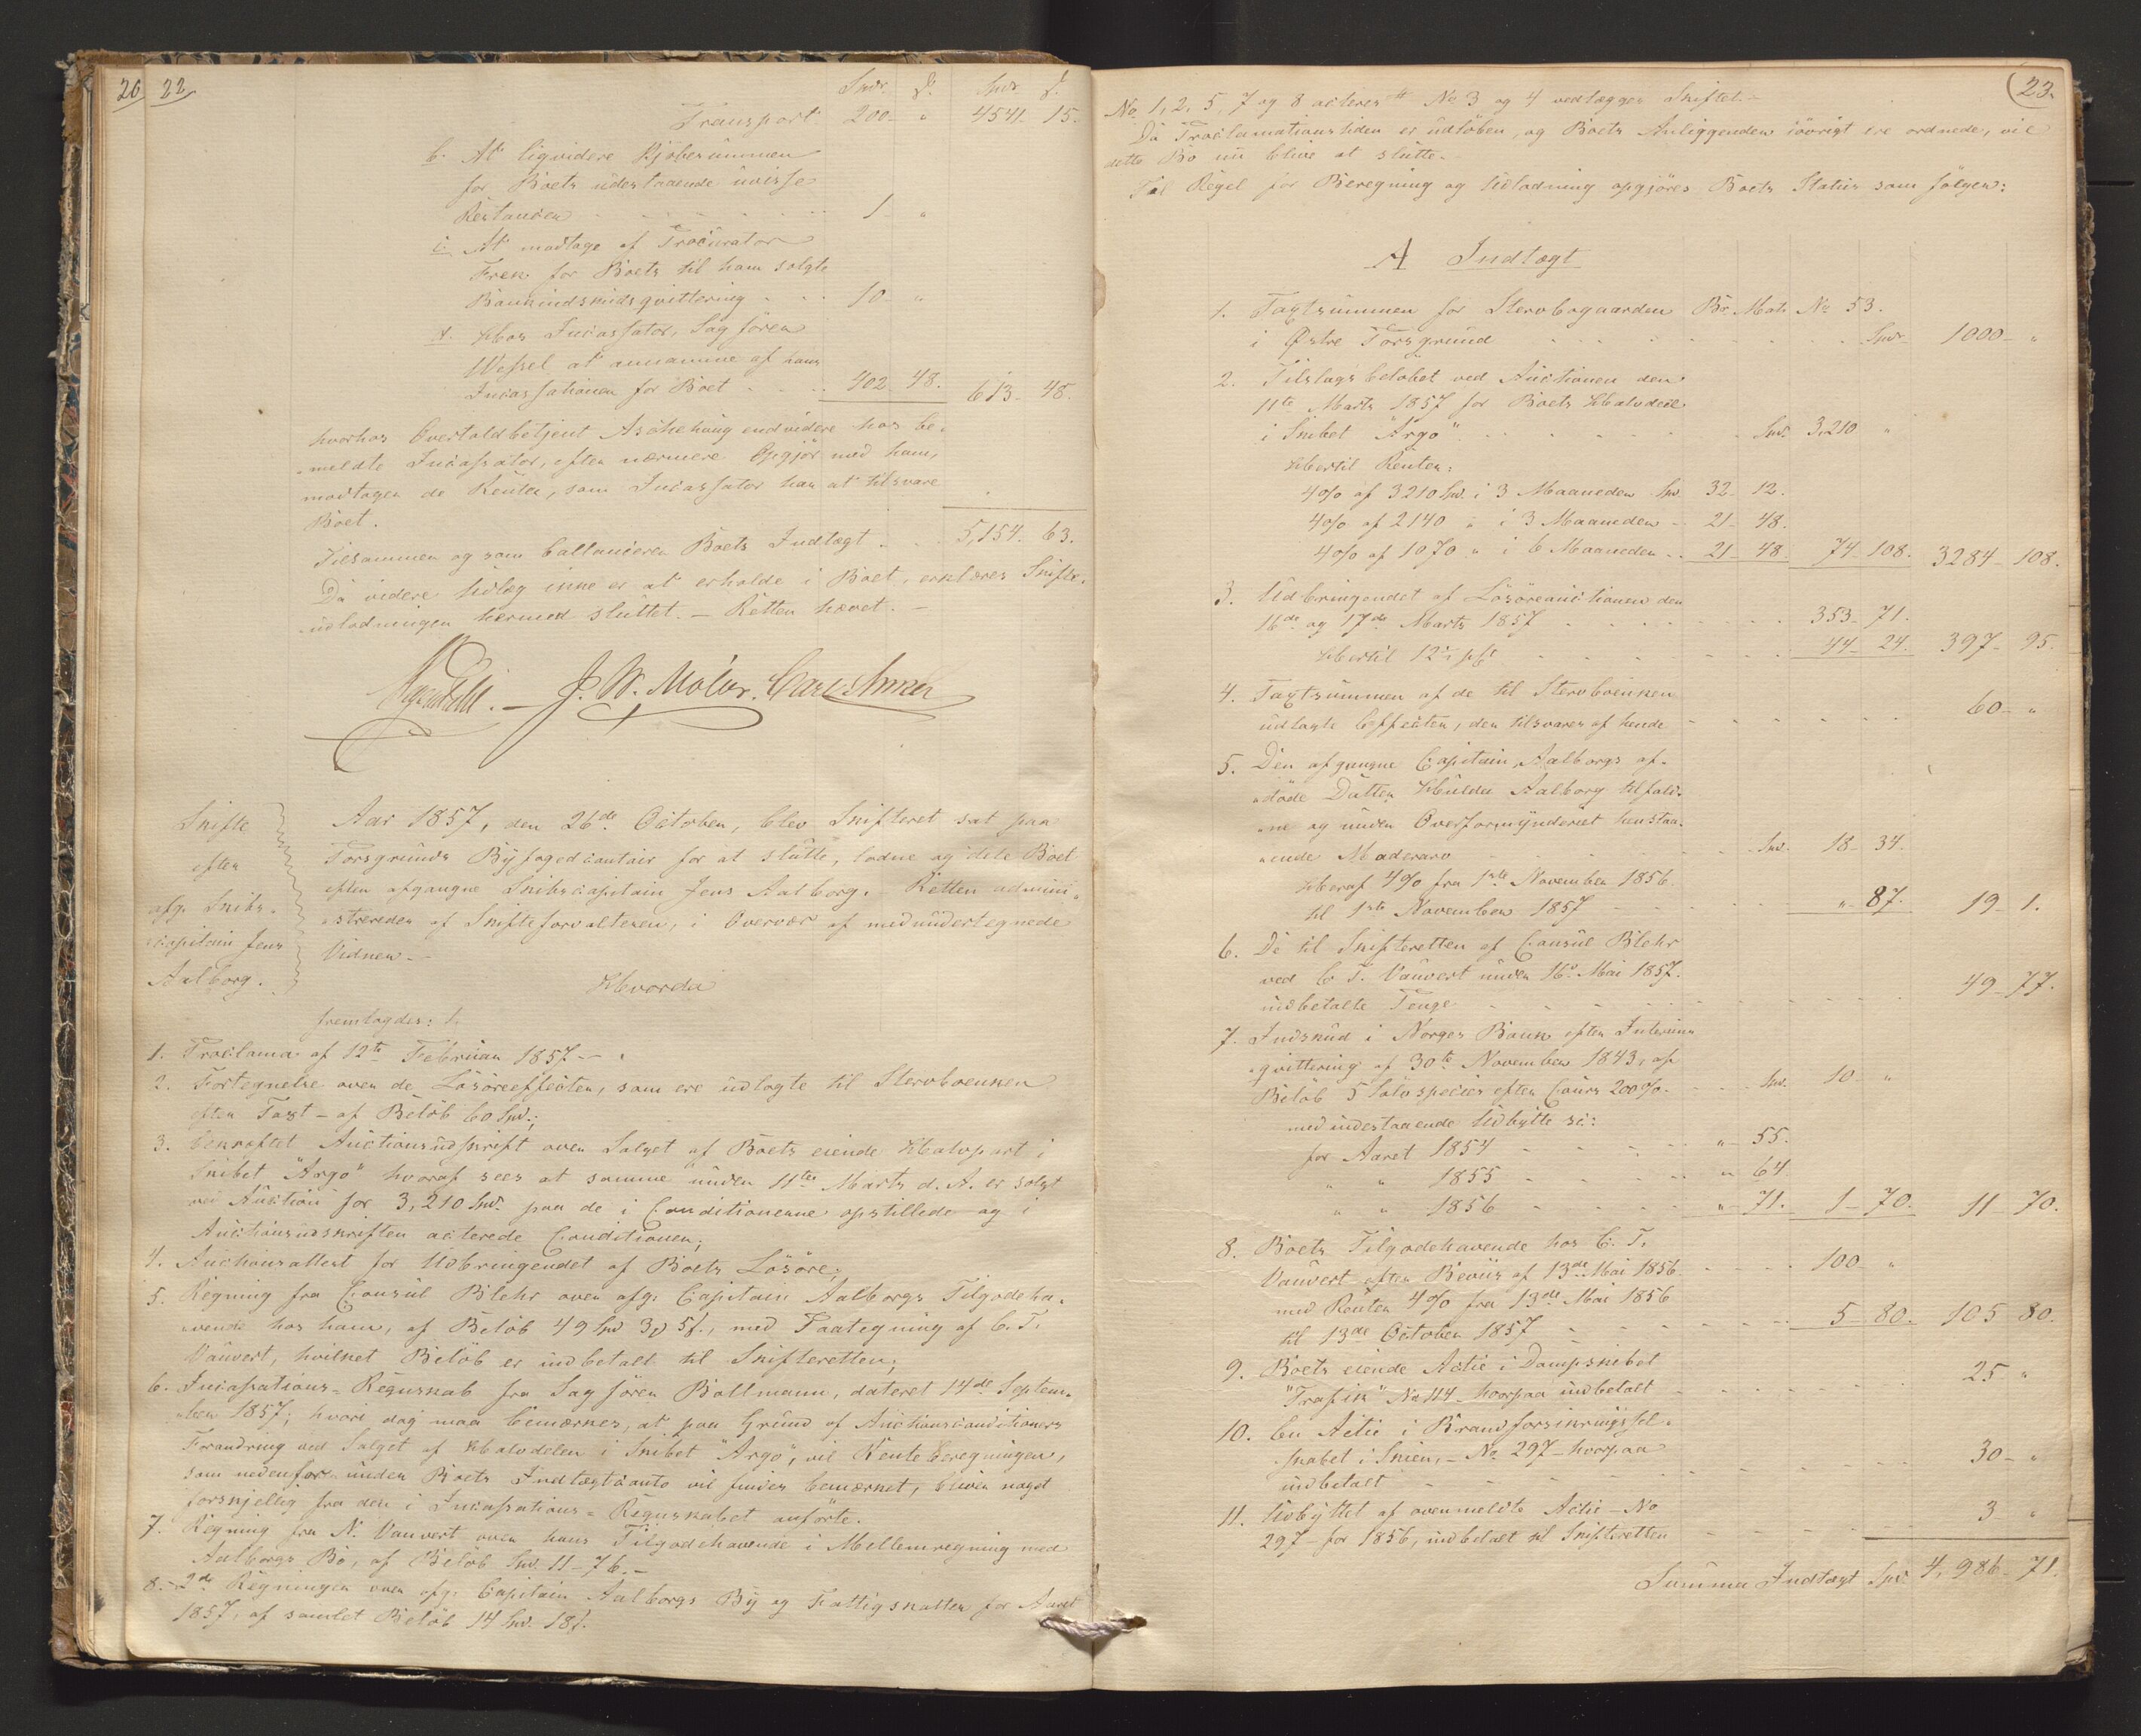 20 22
Spdr. ß. Spdr ß.
Transport 200 - " 4541 - 15.
b. At liqvidere Kjöbesummen
for Boets udestaaende uvisse
Restancer - - - - - 1 - "
c. At modtage af Procurator
Fren for Boets til ham solgte
Bankindskudsqvittering - - - 10 - "
d. Hos Incassator, Sagförer
Wessel at annamme af hans
Incassationer for Boet - - - 402 - 48. 613 - 48.
hvorhos Overtoldbetjent Aschehoug endvidere hos be-
meldte Incassator, efter nærmere Opgjör med ham,
modtager de Renter, som Incassator har at tilsvare
Boet.
Tilsammen og som ballancerer Boets Indtægt - - 5,154. 63.
Da videre Udlæg ikke er at erholde i Boet, erklæres Skifte-
udlodningen hermed sluttet. - Retten hævet. -
J. W. Möller. Carl
Skifte
efter
afg. Skibs-
capitain Jens
Aalborg.
Aar 1857, den 26de October, blev Skifteret sat paa
Porsgrunds Byfogedcontoir for at slutte, lodne og dele Boet
efter afgangne Skibscapitain Jens Aalborg. - Retten admini-
streredes af Skifteforvalteren, i Overvær af medundertegnede
Vidner. -
Hvorda
fremlagdes:
1. Proclama af 12te Februar 1857 -
2. Fortegnelse over de Lösöreeffecter, som ere udlagte til Stervboenken
efter Taxt - af Belöb 60 Spd.;
3. bekræftet Auctionsudskrift over Salget af Boets eiende Halvpart i
Skibet "Argo" hvoraf sees at samme under 11te Marts d. A. er solgt
ved Auction for 3,210 Spd. paa de i Conditionerne opstillede og i
Auctionsudskriften acterede Conditioner;
4. Auctionsattest for Udbringendet af Boets Lösöre;
5. Regning fra Consul Blehr over afg. Capitain Aalborgs Tilgodeha-
vende hos ham, af Belöb 49 Spd 3 5ß., med Paategning af C. T.
Vauvert, hvilket Belöb er indbetalt til Skifteretten;
6. Incassations-Regnskab fra Sagförer Bollmann, dateret 14de Septem-
ber 1857; hvori dog maa bemærkes, at paa Grund af Auctionsconditioners
Forandring ved Salget af Halvdelen i Skibet "Argo", vil Renteberegningen,
som nedenfor under Boets Indtægtsconto vil findes bemærket, bliver noget
forskjellig fra den i Incassations-Regnskabet anförte.
7. Regning fra N. Vauvert over hans Tilgodehavende i Mellemregning med
Aalborgs Bo, af Belöb Spd. 11 - 76. -
8. 2de Regninger over afg. Capitain Aalborgs By og Fattigskatter for Aaret
1857, af samlet Belöb 14 Spd. 18ß.
23.
No 1, 2, 5, 7 og 8 acteres No 3 og 4 vedlægges Skiftet. -
Da Proclamationstiden er udlöben, og Boets Anliggender iövrigt ere ordnede, vil
dette Bo nu blive at slutte.
Til Regel for Beregning og Udlodning opgjöres Boets Status som fölger:
A Indtægt
1. Taxtsummen for Stervbogaarden Br. Mat. No 53.
i Østre Porsgrund - - - - - - Spdr 1000 - "
2. Tilslagsbelöbet ved Auctionen den
11te Marts 1857 for Boets Halvdeel
i Skibet "Argo" - - - - - Spd. 3,210 "
Hertil Renter:
4% af 3210 Spd. i 3 Maaneder Spd. 32 - 12.
4% af 2140 " i 3 Maaneder - 21 - 48.
4% af 1070 " i 6 Maaneder - - 21 - 48. 74 - 108. 3284 - 108.
3. Udbringendet af Lösöreauctionen den
16de og 17de Marts 1857 - - - - - 353 - 71.
Hertil 12½ pCt - - - - - 44 - 24. 397 - 95.
4. Taxtsummen af de til Stervboenken
udlagte Effecter, der tilsvares af hende - - - - - 60 - "
5. Den afgangne Capitain Aalborgs af-
döde Datter Hulda Aalborg tilfald-
ne og under Overformynderiet henstaa-
ende Moderarv - - - - - Spd. 18 - 34.
Heraf 4% fra 1ste November 1856.
til 1ste November 1857 - - - - - " - 87. 19 - 1.
6. De til Skifteretten af Consul Blehr
ved C. T. Vauvert under 16de Mai 1857.
indbetalte Penge - - - - - 49 - 77.
7. Indskud i Norges Bank efter Interims
qvittering af 30te November 1843, af
Belöb 5 Sölvspecies efter Cours 200%. - - - Spd. 10 - "
med indestaaende Udbytte
for Aaret 1854 - - - - " - 55.
" " 1855 - - - - " 64
" " 1856 - - - - " - 71. 1 - 70. 11 - 70.
8. Boets Tilgodehavende hos C. T.
Vauvert efter Beviis af 13de Mai 1856 - - - - 100 - "
med Renter 4% fra 13de Mai 1856
til 13de October 1857 - - - - - 5 - 80. 105 80.
9. Boets eiende Actie i Dampskibet
"Trafik" No 114 hvorpaa indbetalt - - - - - 25 "
10. En Actie i Brandforsikringssel-
skabet i Skien, - No 297 - hvorpaa
indbetalt - - - - - 30 - "
11. Udbyttet af ovenmeldte Actie - No
297 - for 1856, indbetalt til Skifteretten - - - - 3 "
Summa Indtægt Spd. 4,986 - 71.